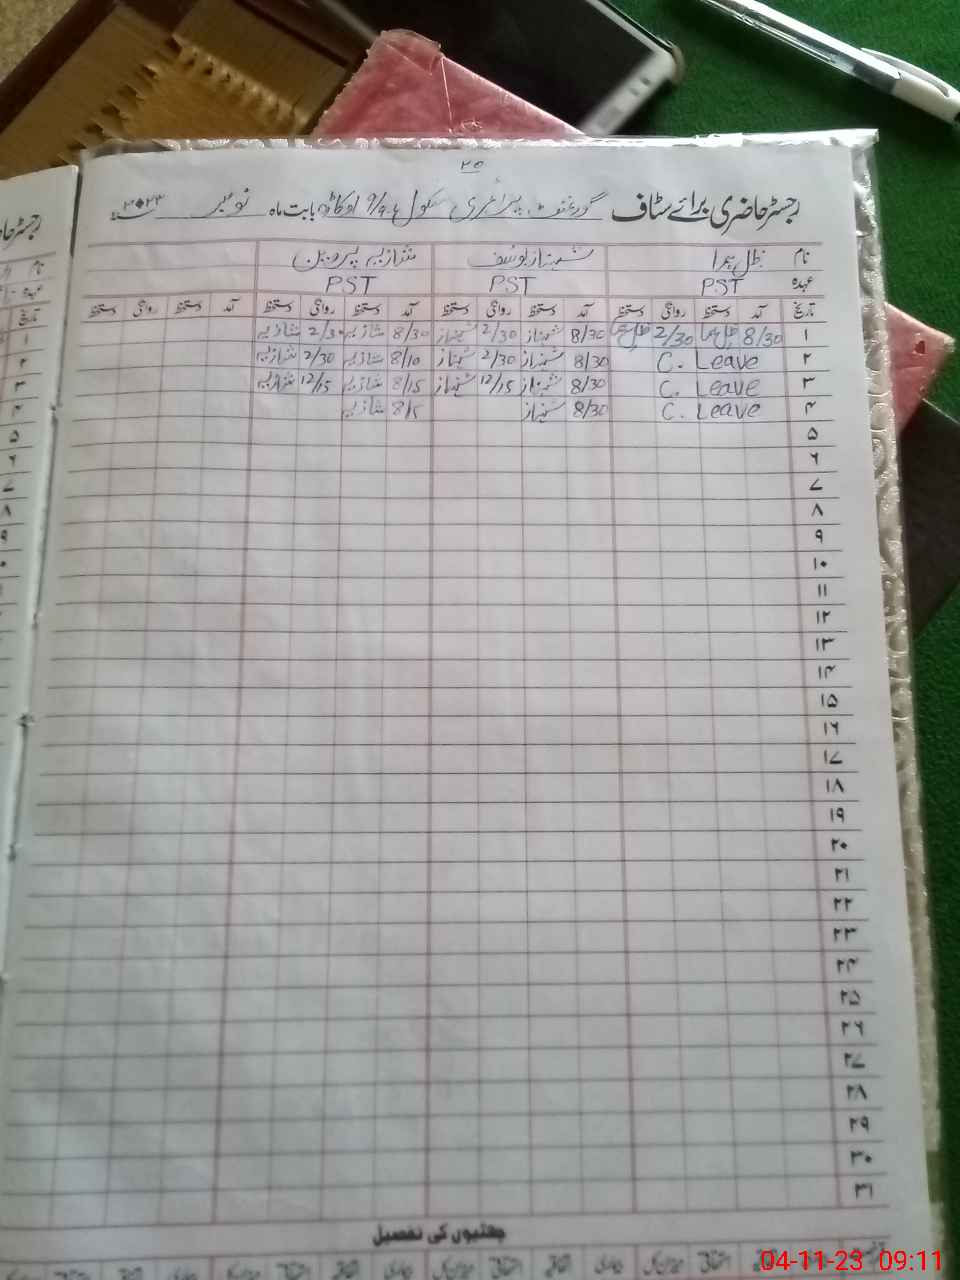 ۲۵
رجسٹر حاضری برائے سٹاف گورنمنٹ پرائمری سکول 9/4.L اوکاڑہ بابت ماہ نومبر ۲۰۲۳
نام ظل ہما شہناز یوسف شازیہ پروین
عہدہ PST PST PST
تاریخ آمد دستخط روانگی دستخط آمد دستخط روانگی دستخط آمد دستخط روانگی دستخط آمد دستخط روانگی دستخط
۱ 8/30 ظل ہما 2/30 ظل ہما 8/30 شہناز 2/30 شہناز 8/30 شازیہ 2/30 شازیہ
۲ C. Leave 8/30 شہناز 2/30 شہناز 8/10 شازیہ 2/30 شازیہ
۳ C. Leave 8/30 شہناز 12/15 شہناز 8/15 شازیہ 12/15 شازیہ
۴ C. Leave 8/30 شہناز 8/15 شازیہ
۵
۶
۷
۸
۹
۱۰
۱۱
۱۲
۱۳
۱۴
۱۵
۱۶
۱۷
۱۸
۱۹
۲۰
۲۱
۲۲
۲۳
۲۴
۲۵
۲۶
۲۷
۲۸
۲۹
۳۰
۳۱
چھٹیوں کی تفصیل
04-11-23 09:11